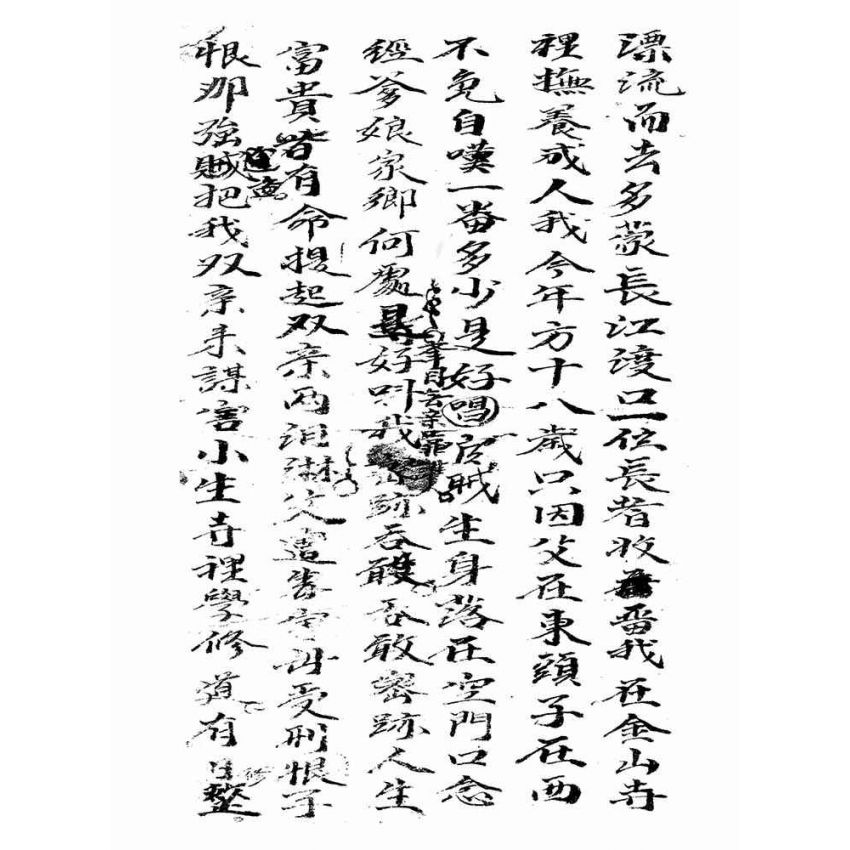 漂流而去多蒙長江渡口一位長者收畱我在金山寺
裡撫養成人我今年方十八歲只因父在東頭子在西
不免自嘆一番多少是好唱官賊生身落在空門口念
經爹娘家鄉何處好叫我密跡吞敢密跡人生
富貴皆有命提起双亲两泪淋父遭害母受刑恨不
恨那強賊把我双亲来謀害小生寺裡學修道有日